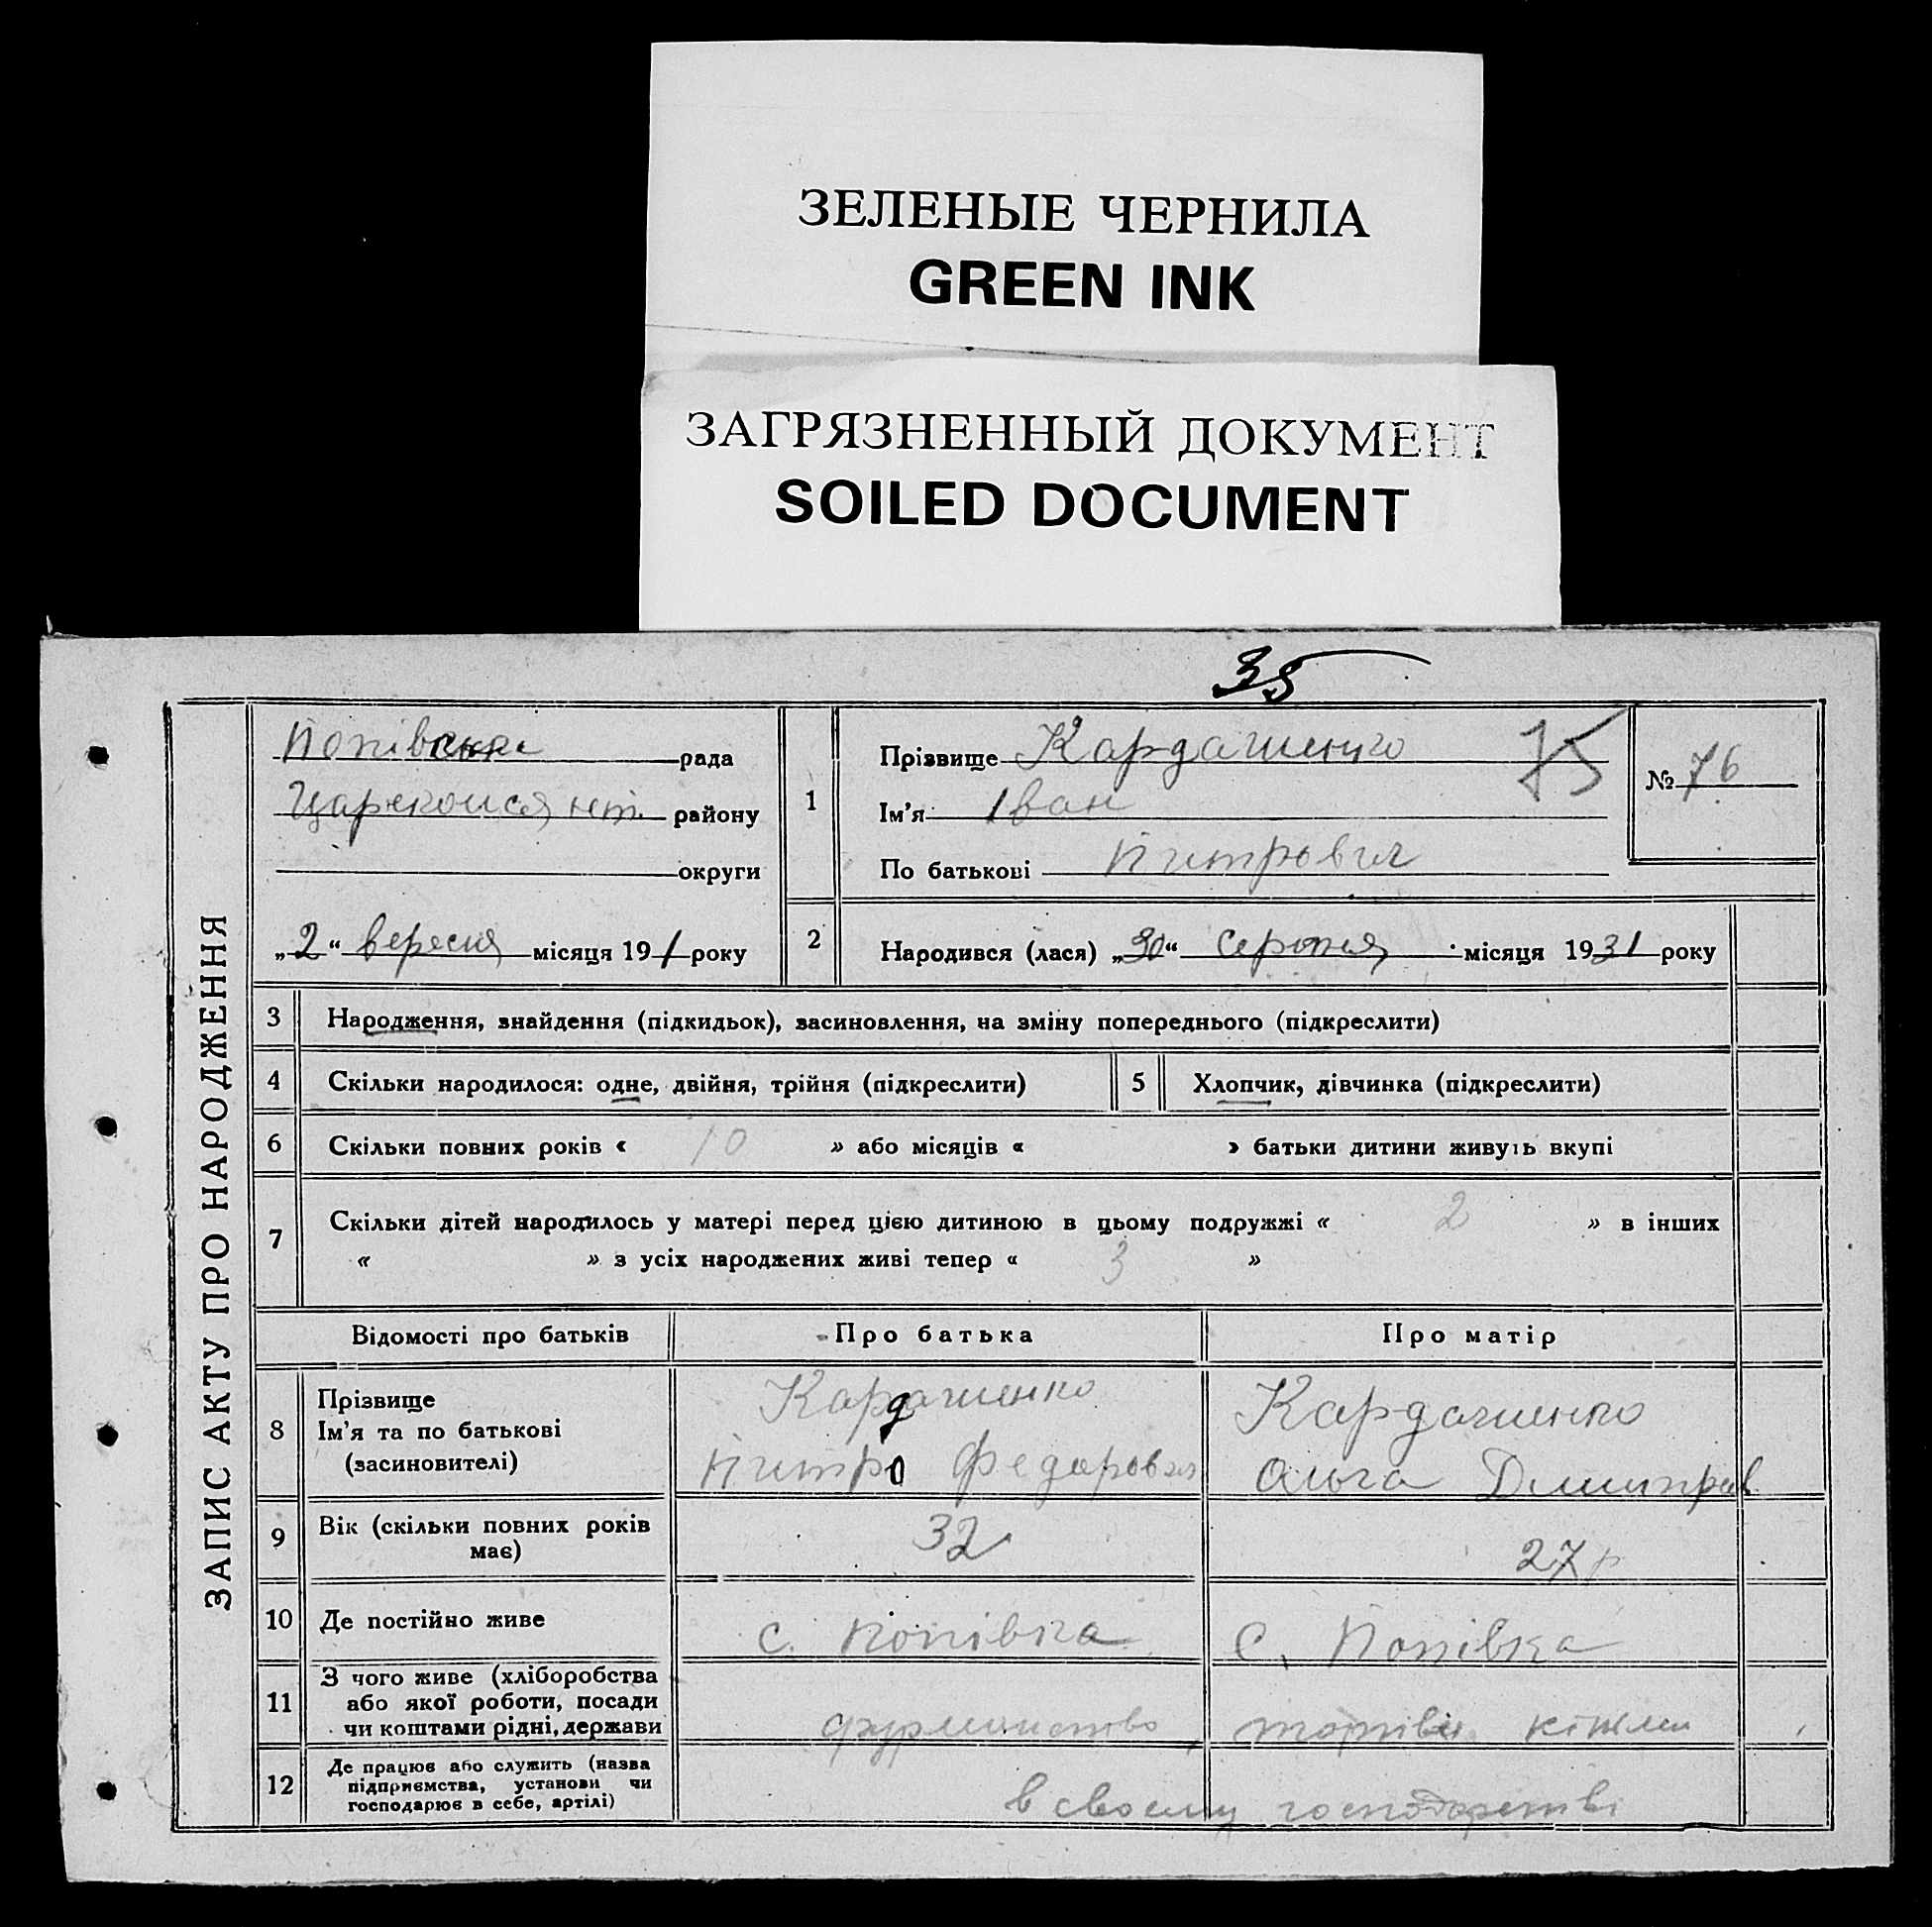 ЗЕЛЕНЫЕ ЧЕРНИЛА
GREEN INK
ЗАГРЯЗНЕННЫЙ ДОКУМЕНТ
SOILED DOCUMENT
35
ЗАПИС АКТУ ПРО НАРОДЖЕННЯ
Попівська рада
району
округи
„2“ вересня місяця 191 року
1
Прізвище Кардашенко
75
№ 76
Ім'я Іван
По батькові Питрович
2
Народився (лася) „30“ Серпня місяця 1931 року
3 Народження, знайдення (підкидьок), засиновлення, на зміну попереднього (підкреслити)
4 Скільки народилося: одне, двійня, трійня (підкреслити) 5 Хлопчик, дівчинка (підкреслити)
6 Скільки повних років « 10 » або місяців « » батьки дитини живуть вкупі
7 Скільки дітей народилось у матері перед цією дитиною в цьому подружжі « 2 » в інших
« » з усіх народжених живі тепер « 3 »
Відомості про батьків Про батька Про матір
8
Прізвище
Ім'я та по батькові
(засиновителі)
Кардашенко
Питро Федорович
Кардашенко
Ольга Дмитрів
9
Вік (скільки повних років
має)
32
27 р
10 Де постійно живе с. Попівка С. Попівка
11
З чого живе (хліборобства
або якої роботи, посади
чи коштами рідні, держави
фурманство,
12
Де працює або служить (назва
підприємства, установи чи
господарює в себе, артілі)
в своєму господарстві